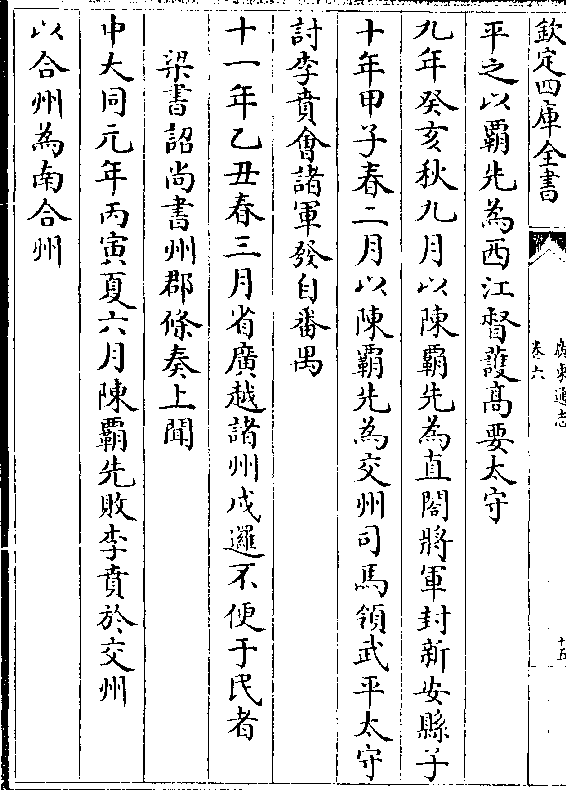 欽定四庫全書
卷六
十五
平之以霸先為西江督護髙要太守
九年癸亥秋九月以陳霸先為直閤將軍封新安縣子
十年甲子春二月以陳霸先為交州司馬領武平太守
討李賁會諸軍發自番禺
十一年乙丑春三月省廣越諸州戍邏不便于民者
梁書詔尚書州郡條奏上聞
中大同元年丙寅夏六月陳霸先敗李賁於交州
以合州為南合州